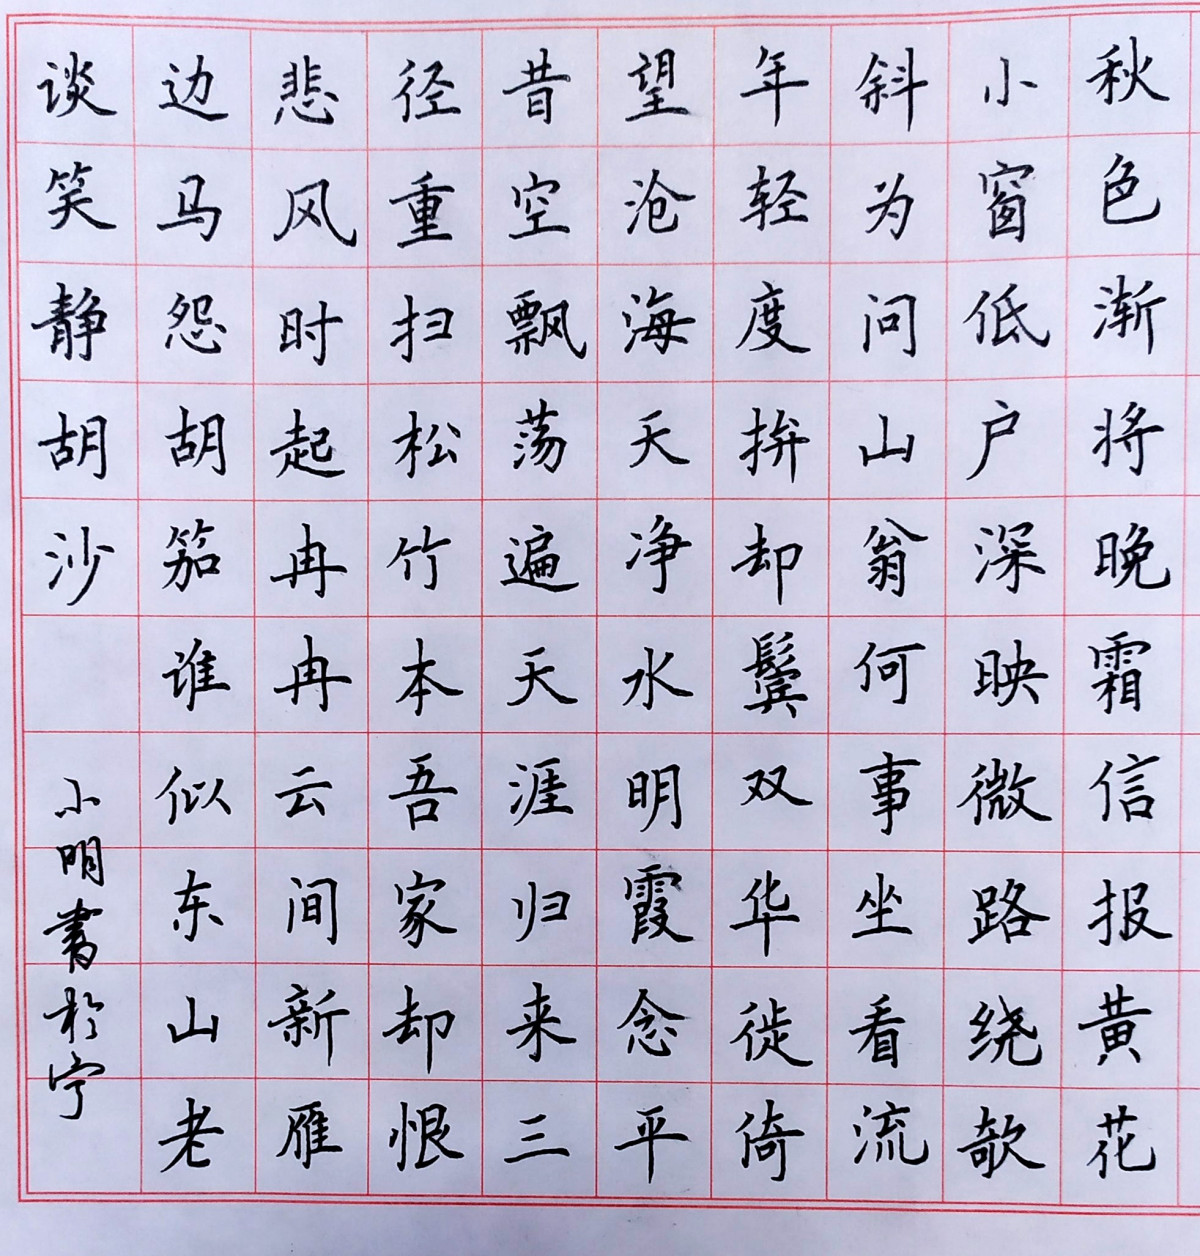 秋色渐将晚霜信报黄花
小窗低户深映微路绕欹
斜为问山翁何事坐看流
年轻度拚却鬓双华徙倚
望沧海天净水明霞念平
昔空飘荡遍天涯归来三
径重扫松竹本吾家却恨
悲风时起冉冉云间新雁
边马怨胡笳谁似东山老
谈笑静胡沙
小明書於宁